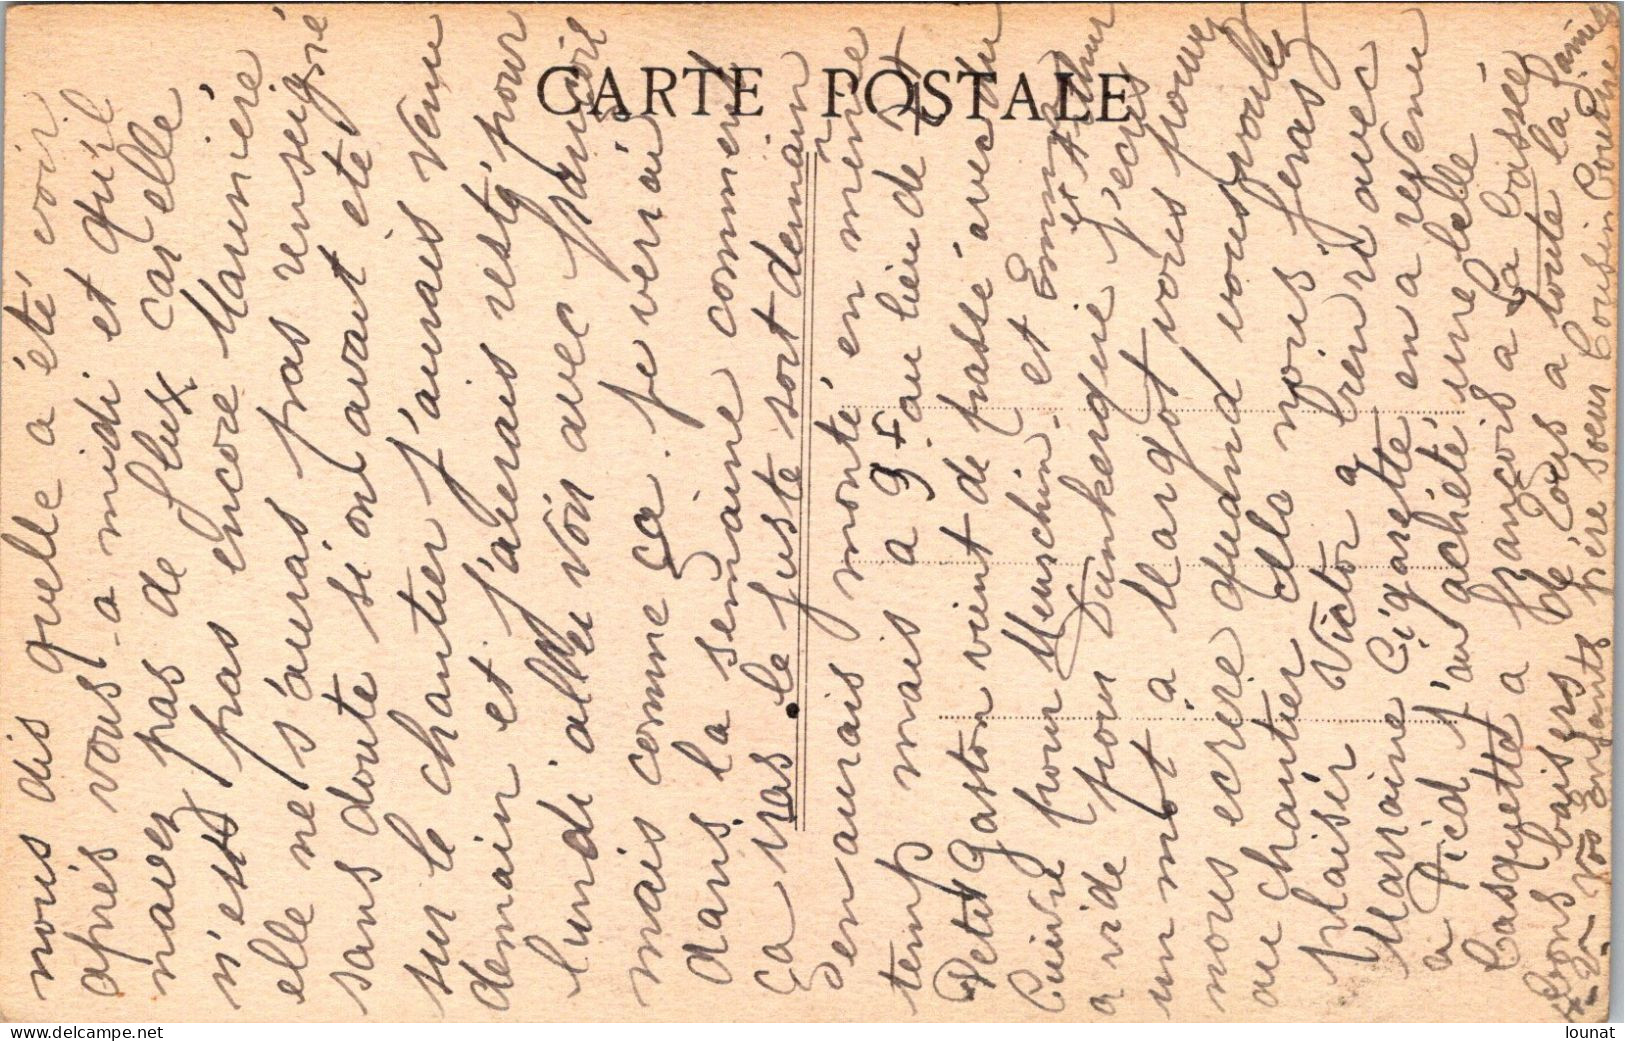 CARTE POSTALE
nous dis quelle a été voir
après vous a midi et qu'il
navez pas de flux car elle
n'est pas encore Marinière
elle ne s'aurais pas renseigné
sans doute si on avait été
sur le chantier j'aurais venu
demain et j'aurais resté pour
lundi aller voir avec françois
mais comme ça je verrai
dans la semaine comment
ça vas le juste sort demain
j'en aurais monté en même
temp mais a 9 F au lieu de 7 F
Petit Gaston vient de passé avec du
Cuivre pour et Emma et Arthur
a vide pour Dunkerque j'ecris
un mot a Margot vous pouvez
nous ecrire quand vous voulez
au chantier cela nous feras
plaisir Victor a bien ri avec
Marraine Cigarette en a revenu
a Pied j'au achété une belle
Casquette a françois a la baisse
Bons baisers de tous a toute la famille
Vos Enfants père soeur Cousin Cousine
lounat